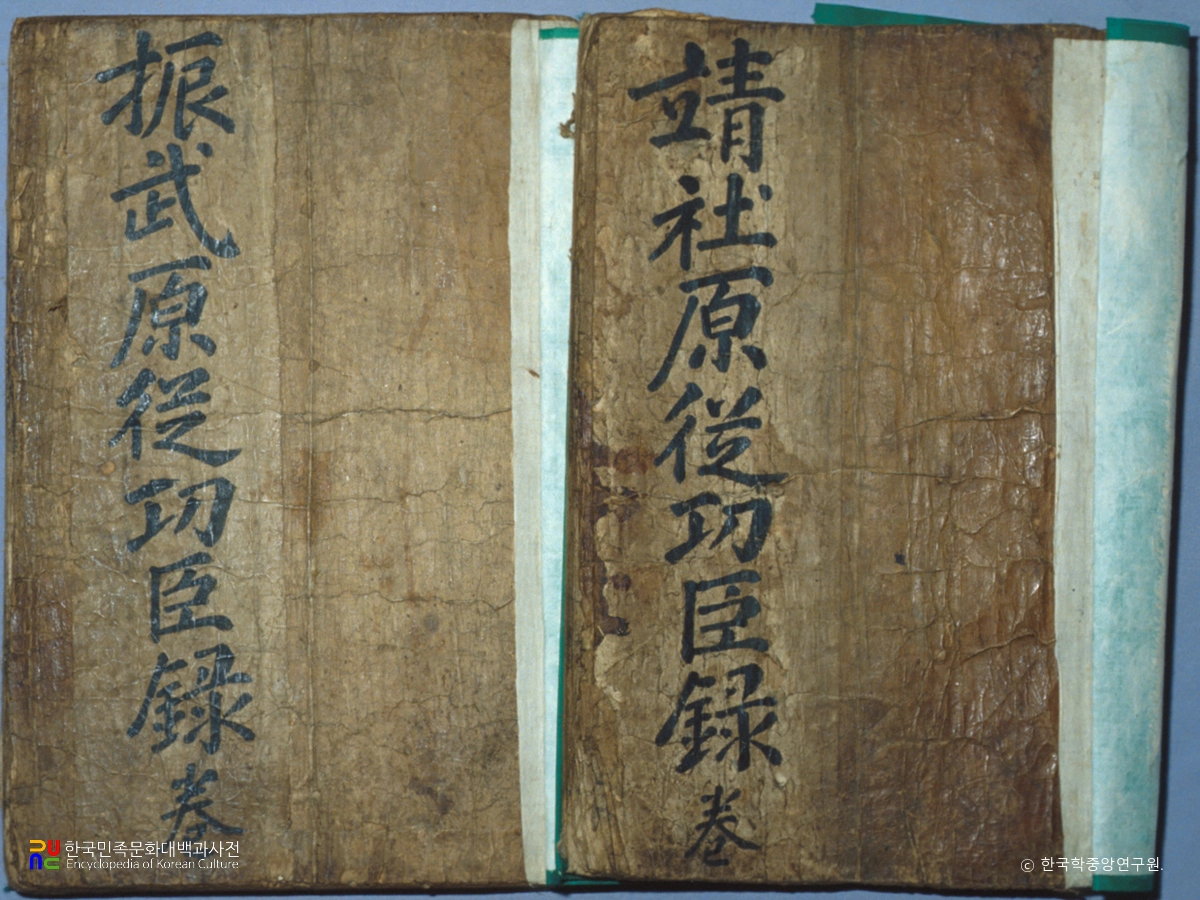 靖社原從功臣錄 卷
振武原從功臣錄 卷
한국민족문화대백과사전
Encyclopedia of Korean Culture
ⓒ 한국학중앙연구원.